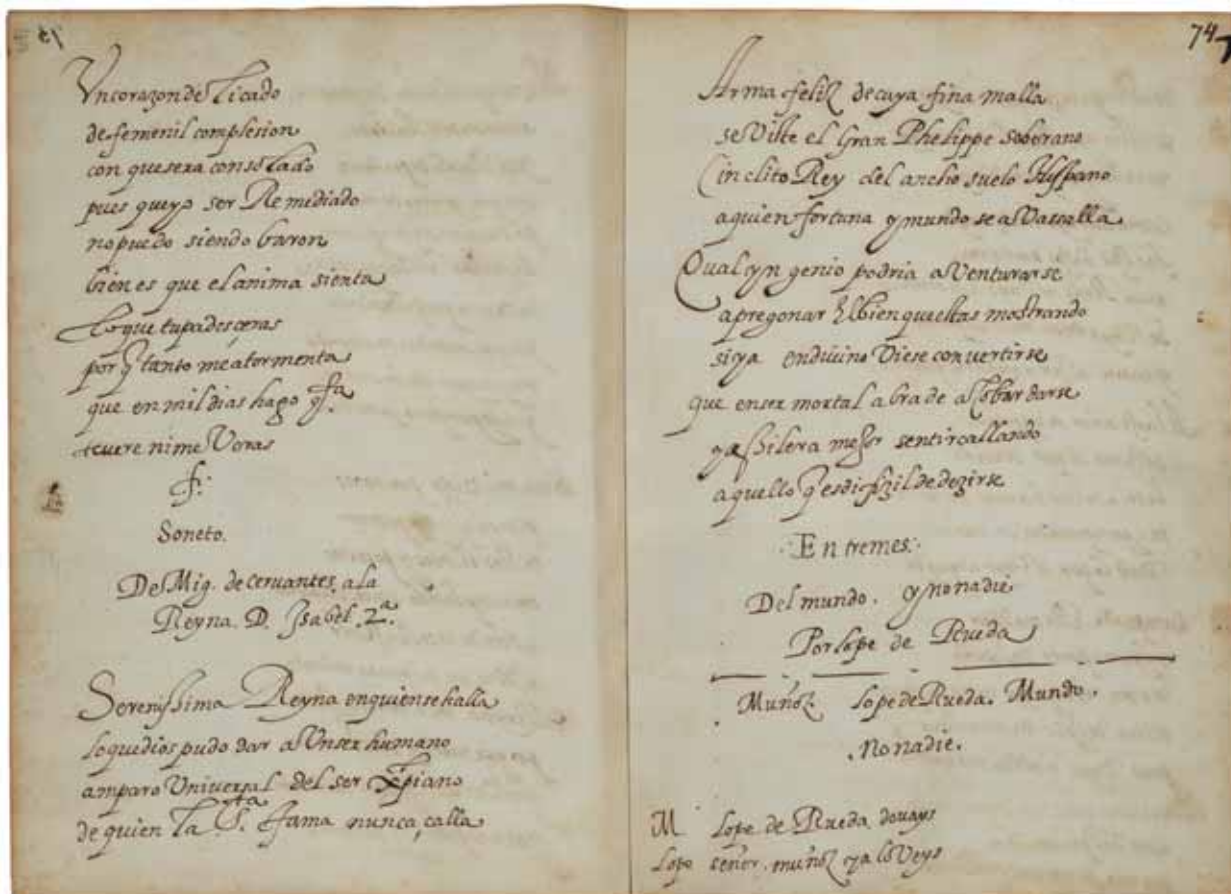 Un corazon delicado
de femenil complesion
con que sera consolado
pues que yo ser Remediado
no puedo siendo baron
bien es que el anima sienta
lo que tu padesçeras
por q̃ tanto me atormenta
que en mil dias hago
te vere ni me Veras
f.
Soneto.
De Mig. de Cervantes, a la
Reyna. D. Isabel. 2.ª
Serenissima Reyna en quien se halla
lo que dios pudo dar a Un ser humano
amparo Universal del ser Xp̃iano
de quien la S.ta fama nunca, calla
74
Arma feliz de cuya fina malla
se Viste el Gran Phelippe soberano
inclito Rey del ancho suelo Hispano
a quien fortuna y mundo se aVassalla
Qual yngenio podria aVenturarse
a pregonar El bien que estas mostrando
si ya en divino Viese convertirse
que en ser mortal abra de acobardarse
y assi le ra mejor sentir callando
aquello q̃ es difiçil de dezirse
Entremes.
Del mundo. y no nadie
Por lope de Rueda
Muñoz. Lope de Rueda. Mundo.
. No nadie.
M Lope de Rueda. do vays
Lope señor. muñoz ya lo Veys